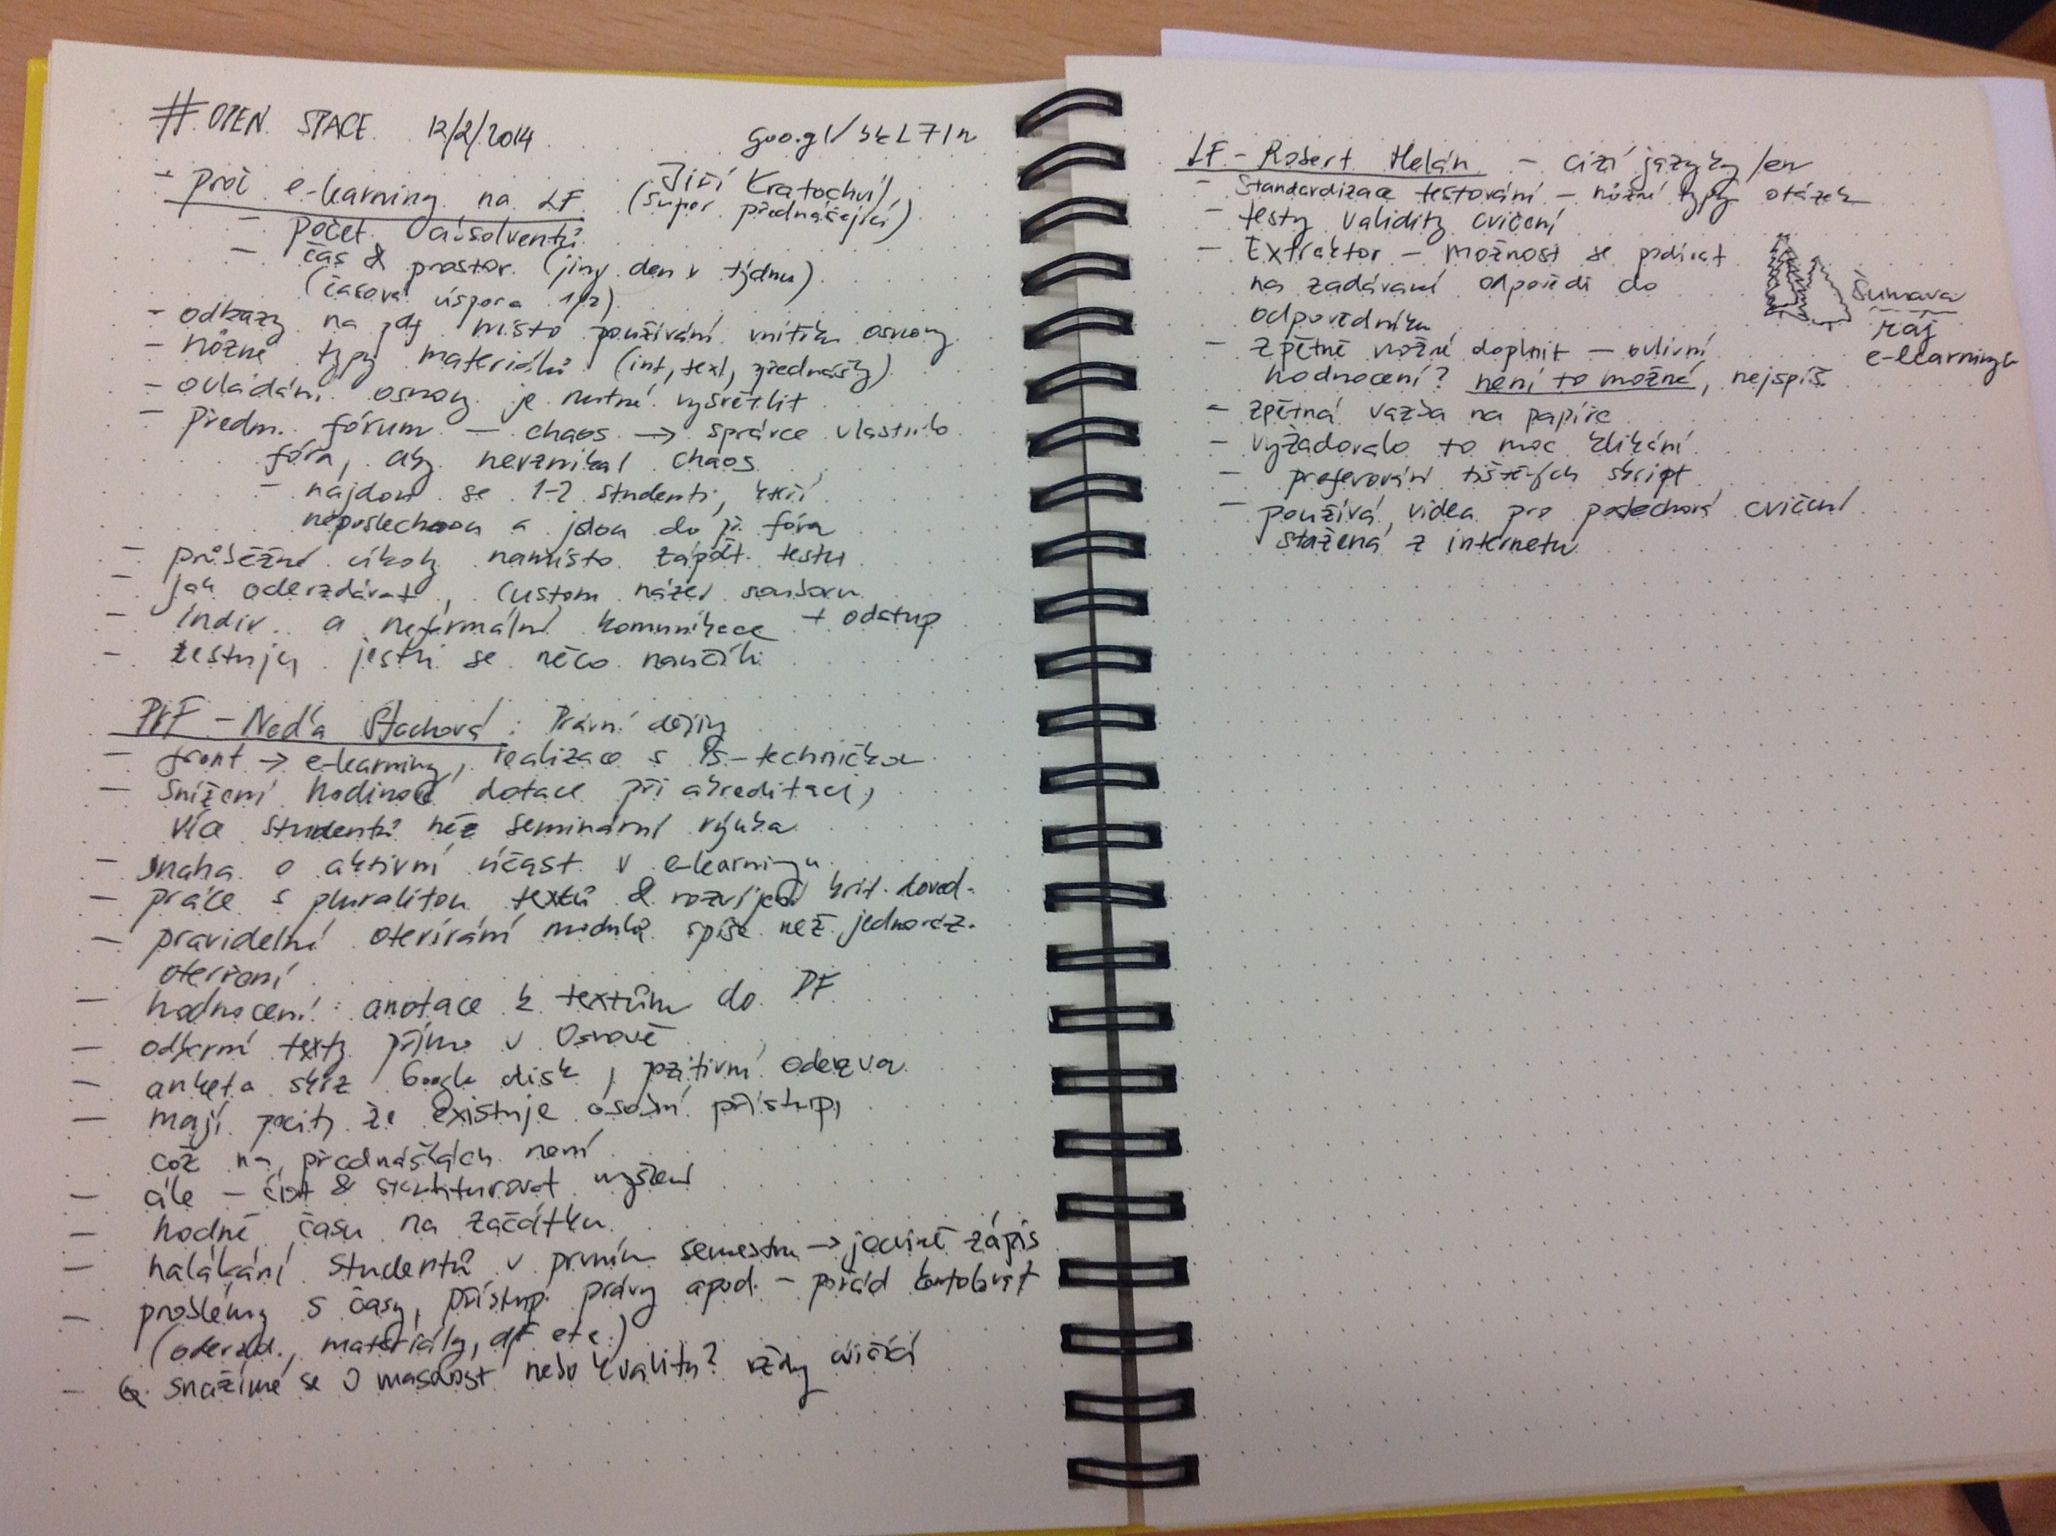 #OPEN SPACE 12/2/2014
goo.gl/
- proč e-learning na LF (Jiří Kratochvíl, super přednášející)
- počet absolventů
- čas & prostor (jiny den v týdnu)
(časová úspora 1/2)
- odkazy na místo používání osnovy
- různé typy materiálů (int, text, přednášky)
- ovládání osnovy je nutné vysvětlit
- předm. fórum – chaos → správce vlastního
fóra, aby nevznikal chaos
- najdou se 1-2 studenti, kteří
neposlechnou a jdou do př. fóra
- průběžné úkoly namísto zápočt. testu
- jak odevzdávat, custom název souboru
- indiv. a neformální komunikace + odstup
- testuju jestli se něco naučili
PrF - Naďa Štachová: Právní dějiny
- front → e-learning, realizace s IS-techničkou
- snížení hodinové dotace při akreditaci,
více studentů než seminární výuka
- snaha o aktivní účast v e-learningu
- práce s pluralitou textů & rozvíjení krit. doved.
- pravidelné otevírání modulů spíše než jednoráz.
otevření
- hodnocení: anotace k textům do DF
- odborné texty přímo v Osnově
- anketa skrz Google disk, pozitivní odezva
- mají pocity že existuje osobní přístup,
což na přednáškách není
- cíle – číst & strukturovat myšlení
- hodně času na začátku
- nalákání studentů v prvním semestru → jediné zápis
- problémy s časy, přístup. právy apod. – pořád kontolovat
(odevzd., materiály, df etc.)
- Q. snažíme se o masovost nebo kvalitu? vždy cvičící
LF - Robert Helán - cizí jazyky/en
- standardizace testování – různé typy otázek
- testy validity cvičení
- Extraktor – možnost se podívat
na zadávaní odpovědi do
odpovědníku
- zpětně možné doplnit – ovlivní
hodnocení? není to možné, nejspíš
- zpětná vazba na papíře
- vyžadovalo to moc klikání
- preferování tištěných skript
- používá videa pro poslechová cvičení
stažená z internetu
Šumava
ráj
e-learningu